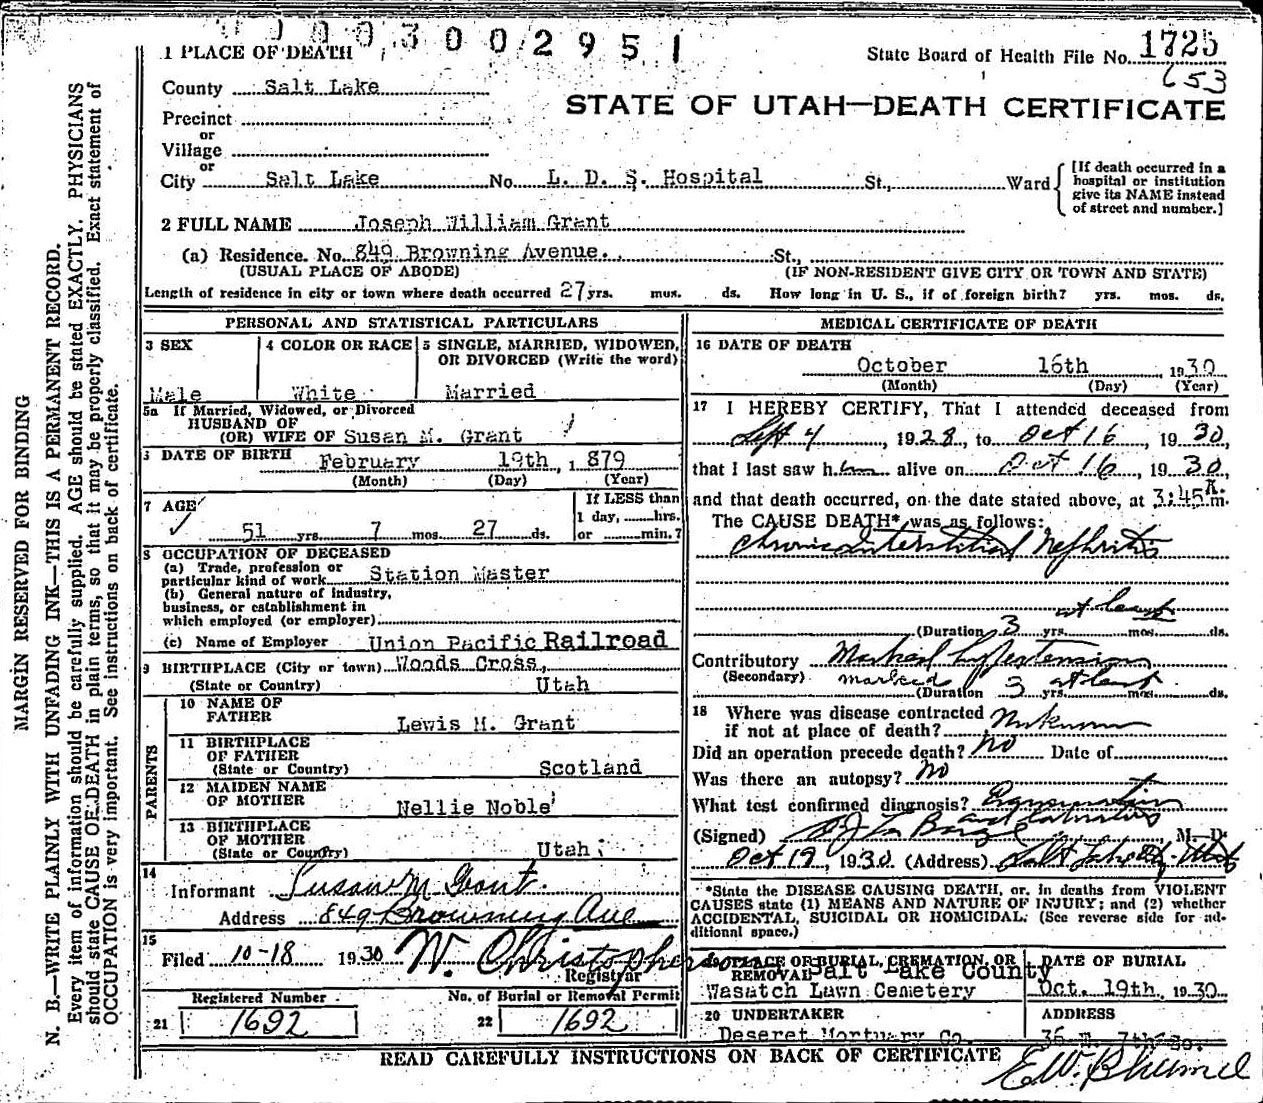 003002951
1 PLACE OF DEATH
State Board of Health File No. 1725
653
County Salt Lake
STATE OF UTAH—DEATH CERTIFICATE
Precinct
or
Village
or
City Salt Lake No. L. D. S. Hospital St., Ward
[If death occurred in a
hospital or institution
give its NAME instead
of street and number.]
2 FULL NAME Joseph William Grant
(a) Residence. No. 849 Browning Avenue. St.,
(USUAL PLACE OF ABODE) (IF NON-RESIDENT GIVE CITY OR TOWN AND STATE)
Length of residence in city or town where death occurred 27 yrs. mos. ds. How long in U. S., if of foreign birth? yrs. mos. ds.
PERSONAL AND STATISTICAL PARTICULARS
3 SEX
Male
4 COLOR OR RACE
White
5 SINGLE, MARRIED, WIDOWED,
OR DIVORCED (Write the word)
Married
5a If Married, Widowed, or Divorced
HUSBAND OF
(OR) WIFE OF Susan M. Grant
6 DATE OF BIRTH February 19th, 1879
(Month) (Day) (Year)
7 AGE
51 yrs. 7 mos. 27 ds.
If LESS than
1 day, hrs.
or min.?
8 OCCUPATION OF DECEASED
(a) Trade, profession or
particular kind of work Station Master
(b) General nature of industry,
business, or establishment in
which employed (or employer)
(c) Name of Employer Union Pacific Railroad
9 BIRTHPLACE (City or town) Woods Cross,
(State or Country) Utah
PARENTS
10 NAME OF
FATHER Lewis M. Grant
11 BIRTHPLACE
OF FATHER
(State or Country) Scotland
12 MAIDEN NAME
OF MOTHER Nellie Noble
13 BIRTHPLACE
OF MOTHER
(State or Country) Utah
14
Informant Susan M Grant.
Address 849 Browning Ave
15
Filed 10-18 1930 W. Christopherson
Registrar
Registered Number
21 1692
No. of Burial or Removal Permit
22 1692
MEDICAL CERTIFICATE OF DEATH
16 DATE OF DEATH
October 16th, 1930
(Month) (Day) (Year)
17 I HEREBY CERTIFY, That I attended deceased from
Sept 4, 1928, to Oct 16, 1930,
that I last saw him alive on Oct 16, 1930,
and that death occurred, on the date stated above, at 3:45 A. m.
The CAUSE DEATH* was as follows:
Chronic Interstitial Nephritis
at least
(Duration 3 yrs. mos. ds.
Contributory Marked Hypertension
(Secondary) marked at least
(Duration 3 yrs. mos. ds.
18 Where was disease contracted
if not at place of death? Unknown
Did an operation precede death? No Date of
Was there an autopsy? No
What test confirmed diagnosis? Examination
and laboratory
(Signed) M. D.
Oct 17, 1930 (Address) Salt Lake City - Utah
*State the DISEASE CAUSING DEATH, or, in deaths from VIOLENT
CAUSES state (1) MEANS AND NATURE OF INJURY; and (2) whether
ACCIDENTAL, SUICIDAL OR HOMICIDAL. (See reverse side for ad-
ditional space.)
19 PLACE OF BURIAL, CREMATION, OR
REMOVAL Salt Lake County
Wasatch Lawn Cemetery
DATE OF BURIAL
Oct. 19th, 1930
20 UNDERTAKER
Deseret Mortuary Co.
ADDRESS
36 E. 7th So.
READ CAREFULLY INSTRUCTIONS ON BACK OF CERTIFICATE
MARGIN RESERVED FOR BINDING
N. B.—WRITE PLAINLY WITH UNFADING INK—THIS IS A PERMANENT RECORD.
Every item of information should be carefully supplied. AGE should be stated EXACTLY. PHYSICIANS
should state CAUSE OF DEATH in plain terms, so that it may be properly classified. Exact statement of
OCCUPATION is very important. See instructions on back of certificate.